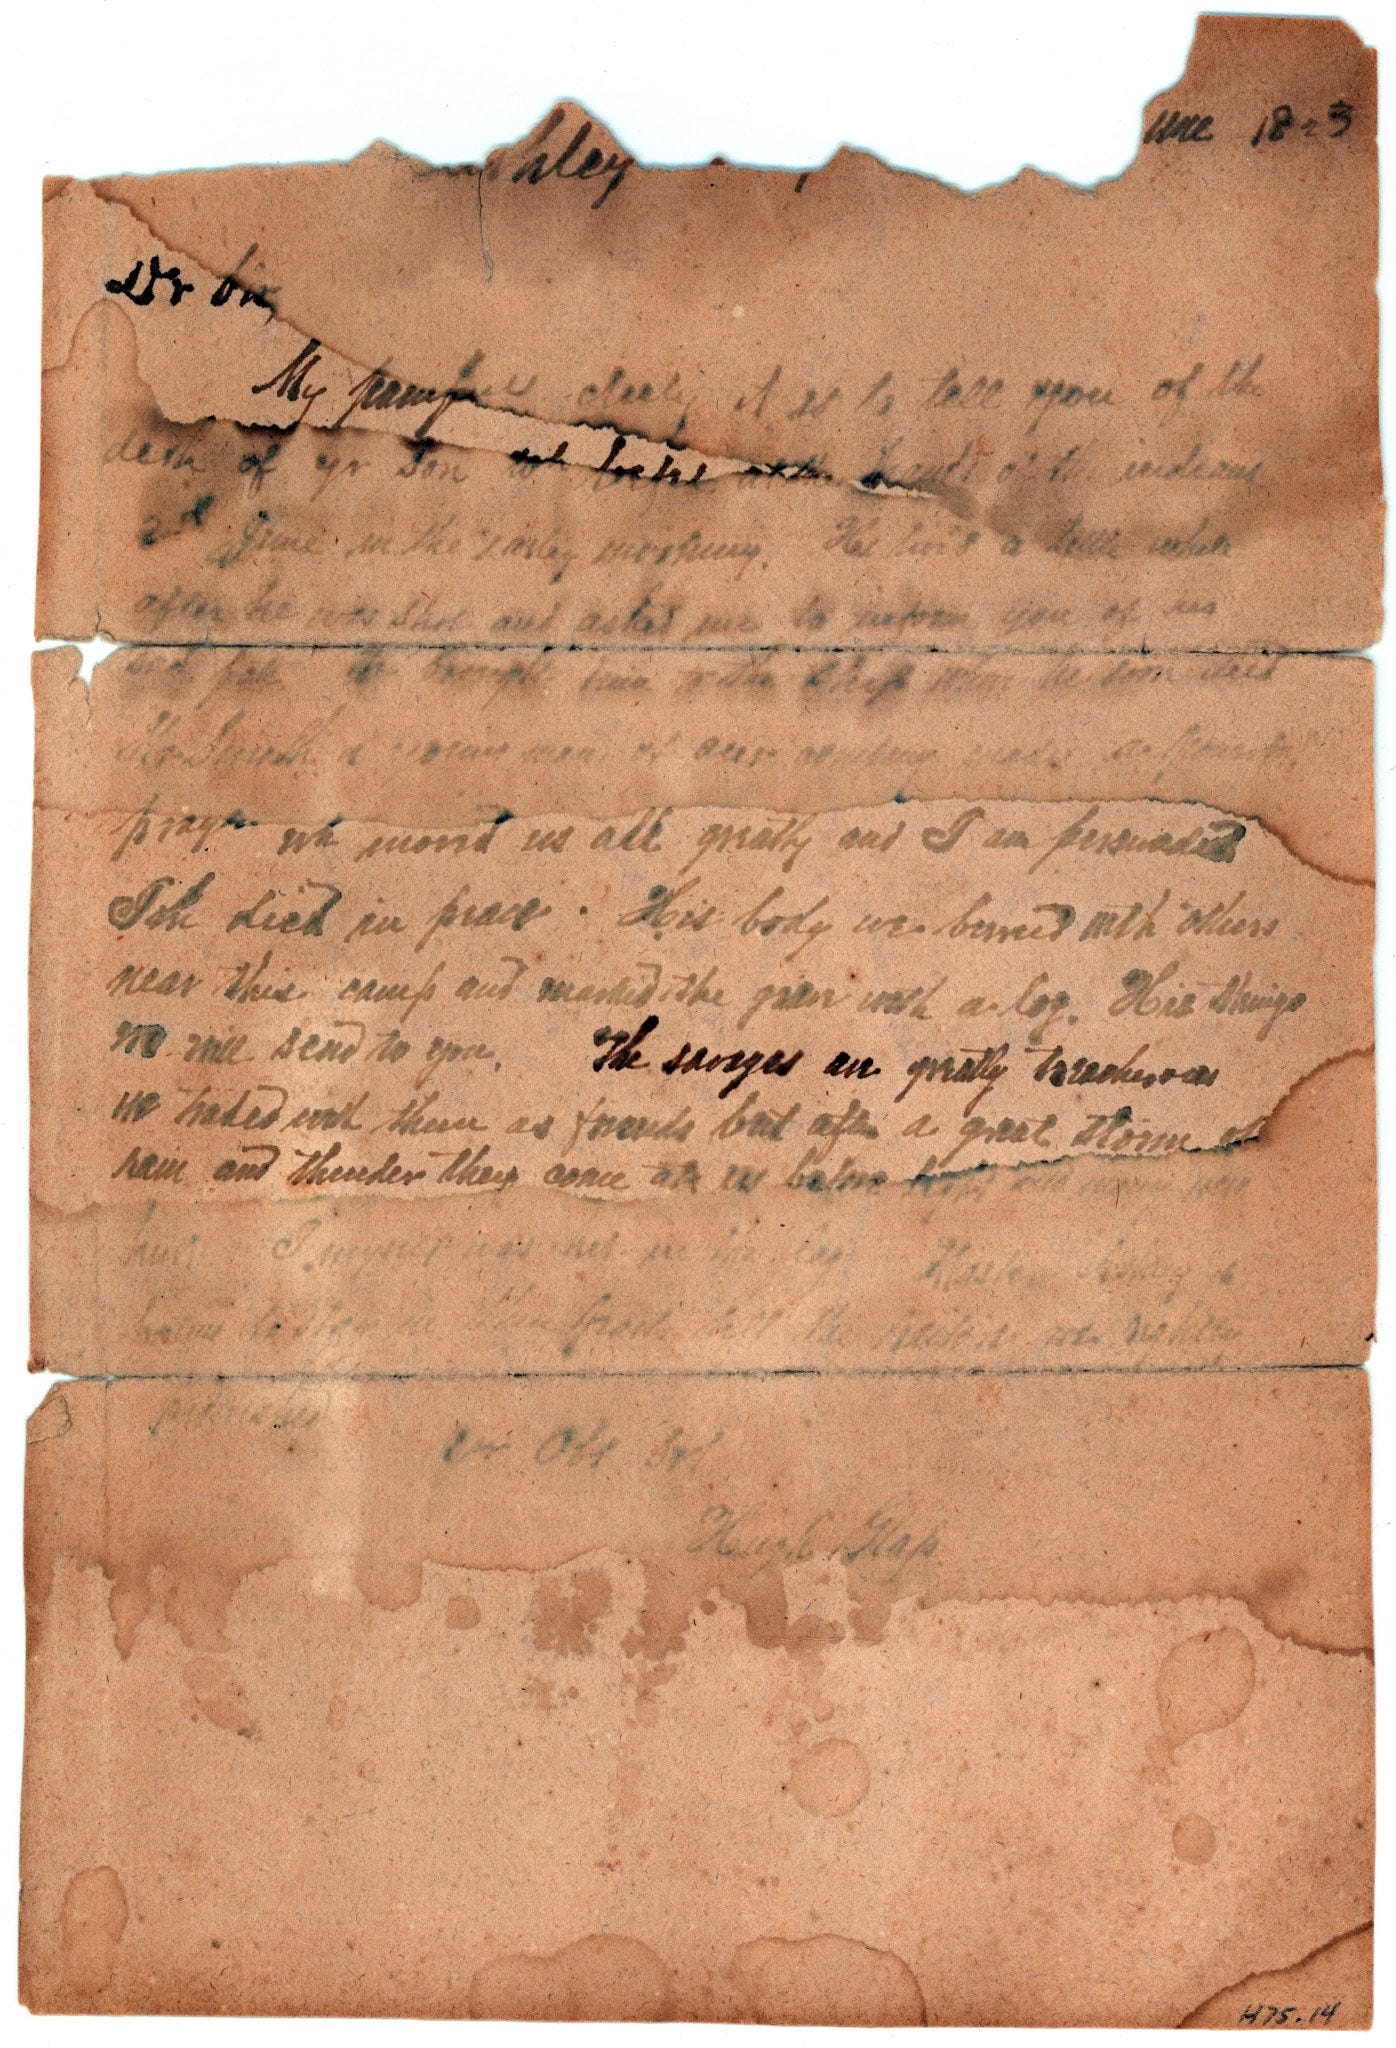 une 1823
shley
Dr Sir,
My painfull duty it is to tell you of the
deth of yr Son wh befell at the hands of the indians
2nd June in the early morning. He lived a little while
after he was shot and asked me to inform you of his
sad fate We brought him to the ship when he soon died
Mr Smith a young man of our company made a powerful
prayr wh moved us all greatly and I am persuaded
John died in peace. His body we burried with others
near this camp and marked the grave with a log. His things
we will send to you. The savages are greatly treacherous
we traded with them as friends but after a great storm of
rain and thunder they come at us before light and many were
hurt. I myself was hit in the leg Master Ashley is
bound to stay in these parts till the traitors are rightly
punished
yr Obt Svt
Hugh Glass
H75.14